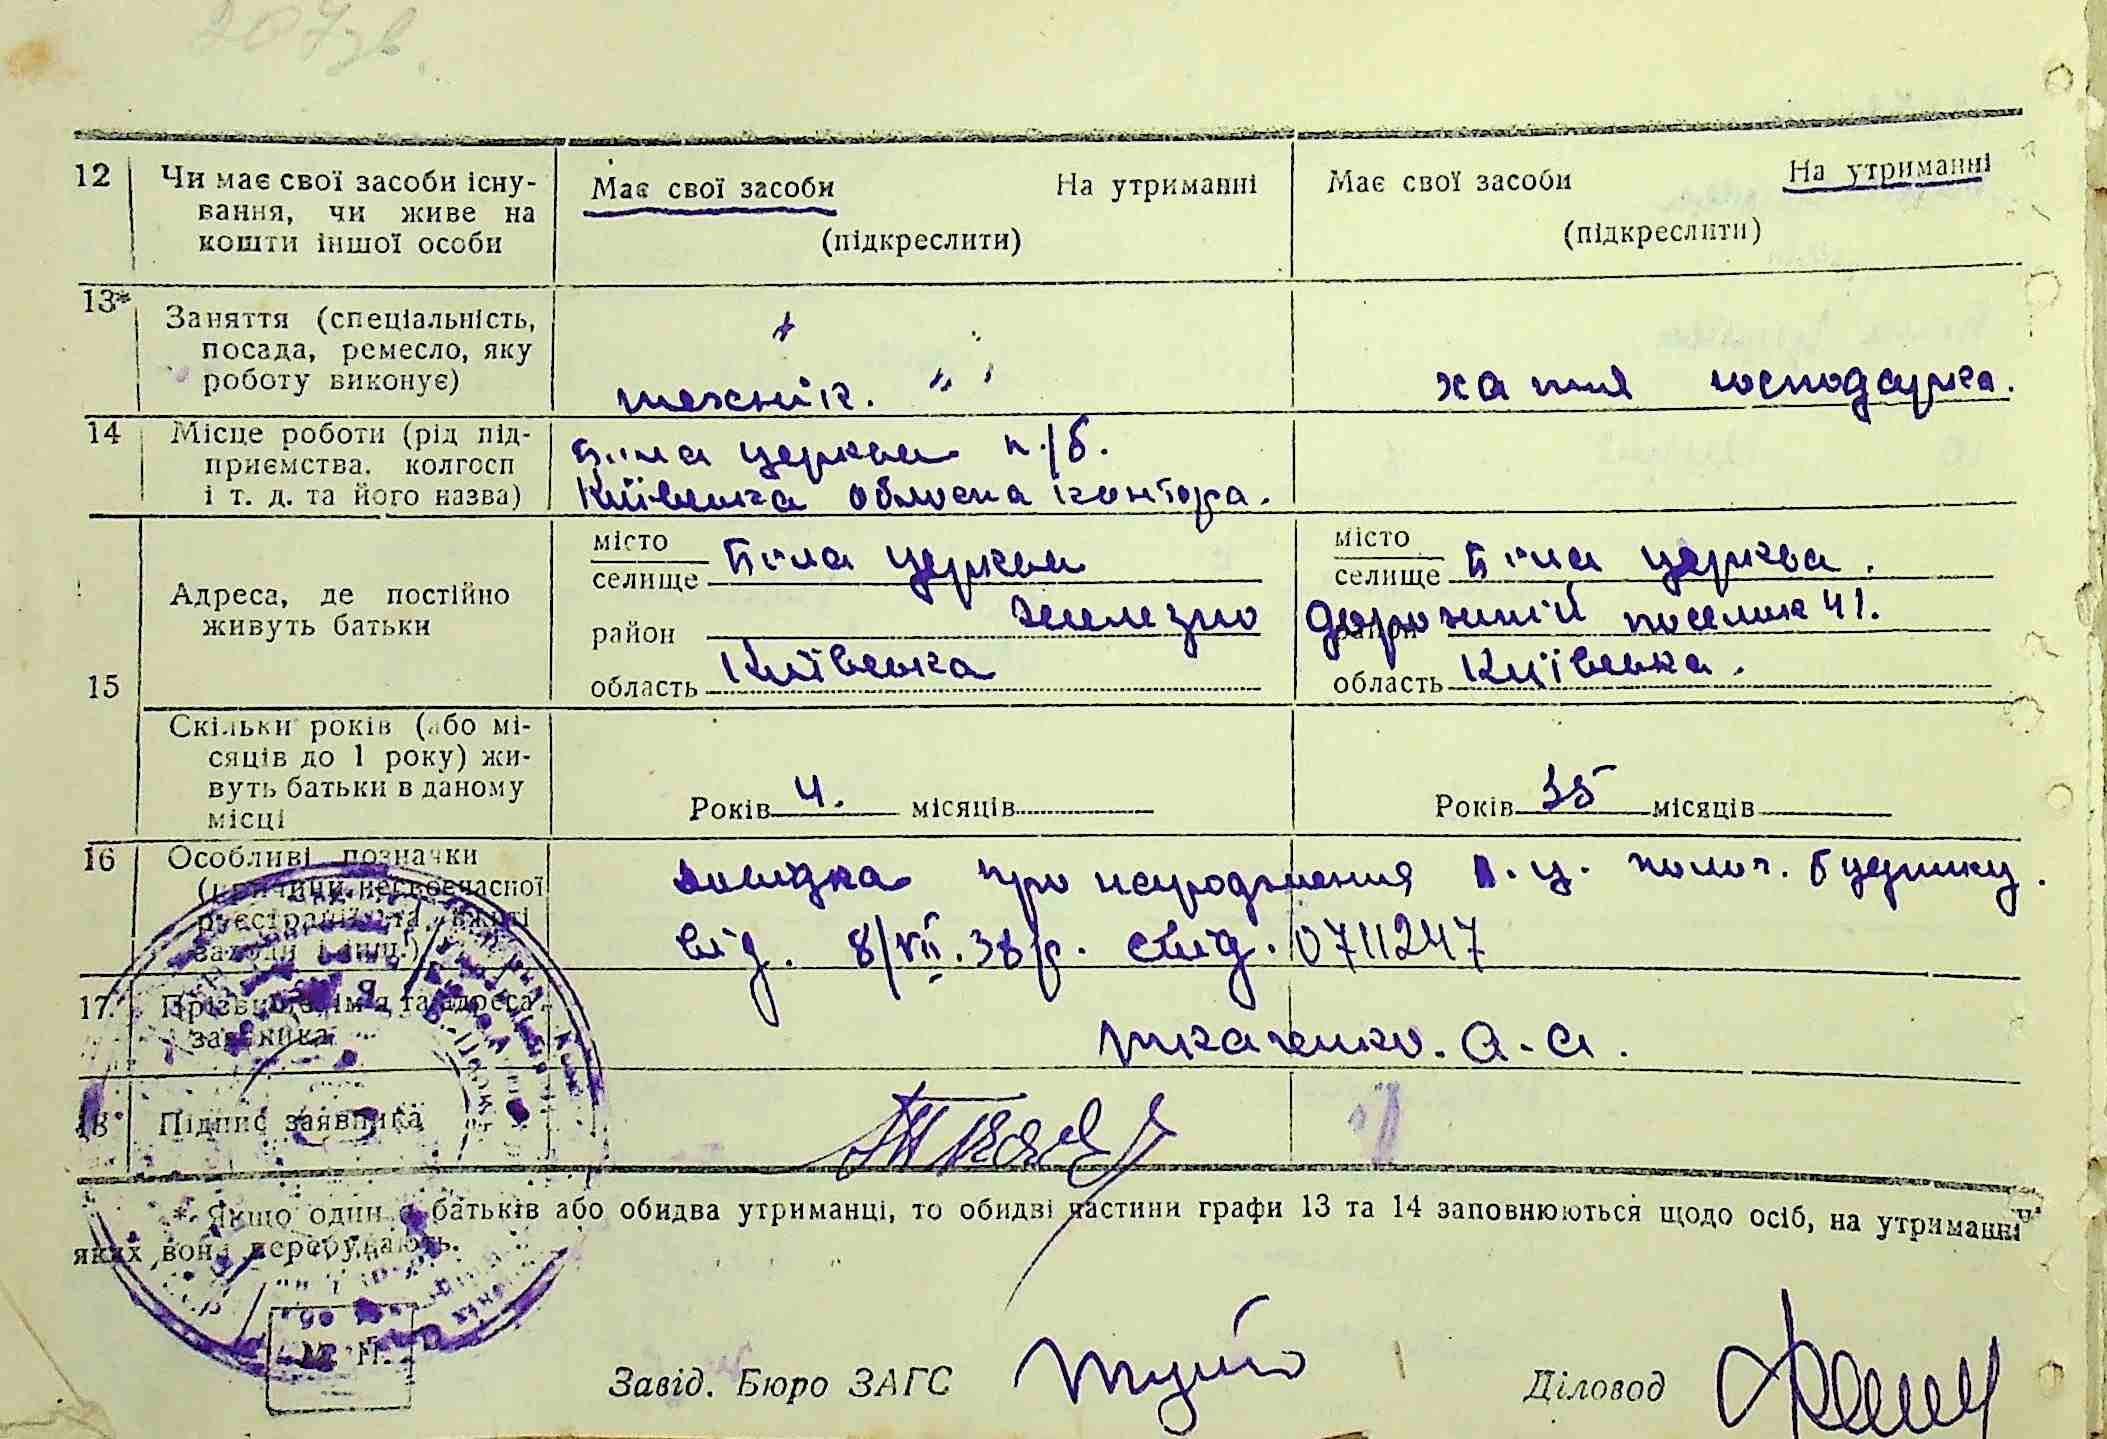 207зв.
12 Чи має свої засоби існу-
вання, чи живе на
кошти іншої особи
Має свої засоби На утриманні
(підкреслити)
Має свої засоби На утриманні
(підкреслити)
13* Заняття (спеціальність,
посада, ремесло, яку
роботу виконує)
технік.
хатня господарка.
14 Місце роботи (рід під-
приємства, колгосп
і т. д. та його назва)
Біла церква п/б.
Київська обласна контора.
15 Адреса, де постійно
живуть батьки
місто
селище Біла церква
район железно
область Київська
місто
селище Біла церква.
район дорожній поселок 41.
область Київська.
Скільки років (або мі-
сяців до 1 року) жи-
вуть батьки в даному
місці
Років 4. місяців
Років 35 місяців
16 Особливі позначки
(причини несвоєчасної
реєстрації та вжиті
заходи і інш.)
довідка про народження Б.Ц. полог. будинку.
від. 8/VII.38р. свид. 0711247
17 Прізвище, ім'я та адреса
заявника
Ткаченко. А. А.
18 Підпис заявника
* Якщо один з батьків або обидва утриманці, то обидві частини графи 13 та 14 заповнюються щодо осіб, на утриманні
яких вони перебувають.
М. П.
Завід. Бюро ЗАГС
Діловод